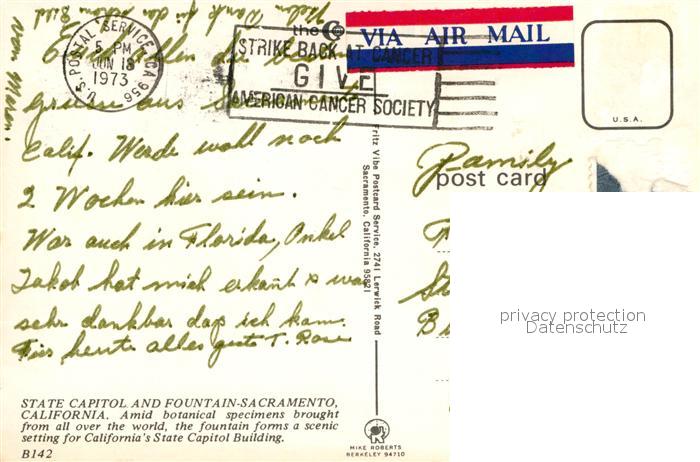 Vielen Dank für den schönen Bild
von Marian.
U.S. POSTAL SERVICE, CA 956
5 PM
JUN 18
1973
the
STRIKE BACK AT CANCER
GIVE
AMERICAN CANCER SOCIETY
VIA AIR MAIL
U.S.A.
allen die besten
grüsse aus
Calif. Werde wohl noch
2 Wochen hier sein.
War auch in Florida, Onkel
Jakob hat mich erkant & war
sehr dankbar dap ich kam.
Fürs heute alles gute T. Rose
Fritz Vibe Postcard Service, 2741 Lerwick Road
Sacramento, California 95821
Family
post card
privacy protection
Datenschutz
STATE CAPITOL AND FOUNTAIN-SACRAMENTO,
CALIFORNIA. Amid botanical specimens brought
from all over the world, the fountain forms a scenic
setting for California's State Capitol Building.
B142
MIKE ROBERTS
BERKELEY 94710